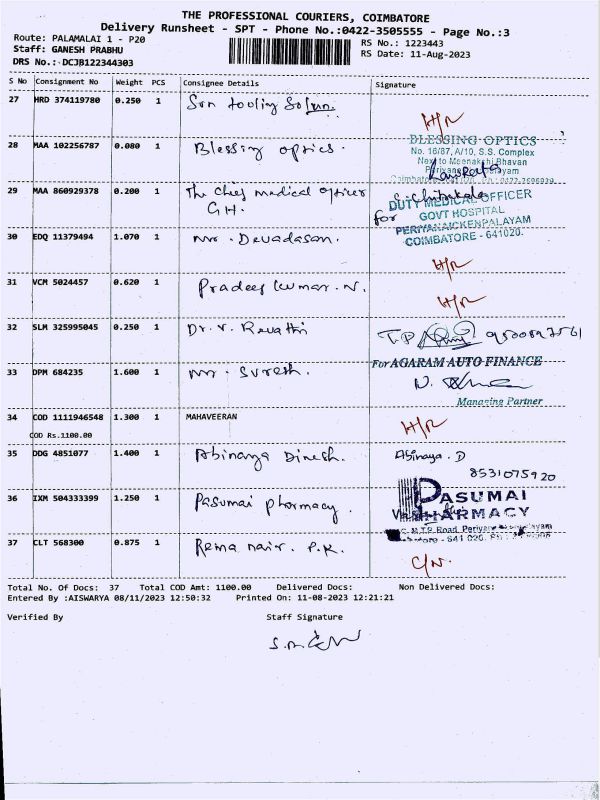 THE PROFESSIONAL COURIERS, COIMBATORE
Delivery Runsheet - SPT - Phone No.:0422-3505555 - Page No.:3
Route: PALAMALAI 1 - P20 RS No.: 1223443
Staff: GANESH PRABHU RS Date: 11-Aug-2023
DRS No.: DCJB122344303
S No Consignment No Weight PCS Consignee Details Signature
27 HRD 374119780 0.250 1 Sri tooling
H/R
28 MAA 102256787 0.080 1 Blessing optics.
BLESSING OPTICS
No. 16/87, A/10, S.S. Complex
Next to Meenakshi Bhavan
29 MAA 860929378 0.200 1 The Chief medical officer
G.H.
DUTY MEDICAL OFFICER
for GOVT HOSPITAL
PERIYANAICKENPALAYAM
COIMBATORE - 641020.
30 EDQ 11379494 1.070 1 Mr. Devadasan.
H/R
31 VCM 5024457 0.620 1 Pradeep kumar. N.
H/R
32 SLM 325995045 0.250 1 Dr. V. Revathi
T.P
33 DPM 684235 1.600 1 Mr. Suresh.
For AGARAM AUTO FINANCE
N.
Managing Partner
34 COD 1111946548 1.300 1 MAHAVEERAN
COD Rs.1100.00
H/R
35 DDG 4851077 1.400 1 Abinaya Dinesh. Abinaya. D
8531075920
36 IXM 504333399 1.250 1 Pasumai pharmacy.
PASUMAI
PHARMACY
M.T.P. Road
37 CLT 568300 0.875 1 Rema nair. P.K.
C/N.
Total No. Of Docs: 37 Total COD Amt: 1100.00 Delivered Docs: Non Delivered Docs:
Entered By :AISWARYA 08/11/2023 12:50:32 Printed On: 11-08-2023 12:21:21
Verified By Staff Signature